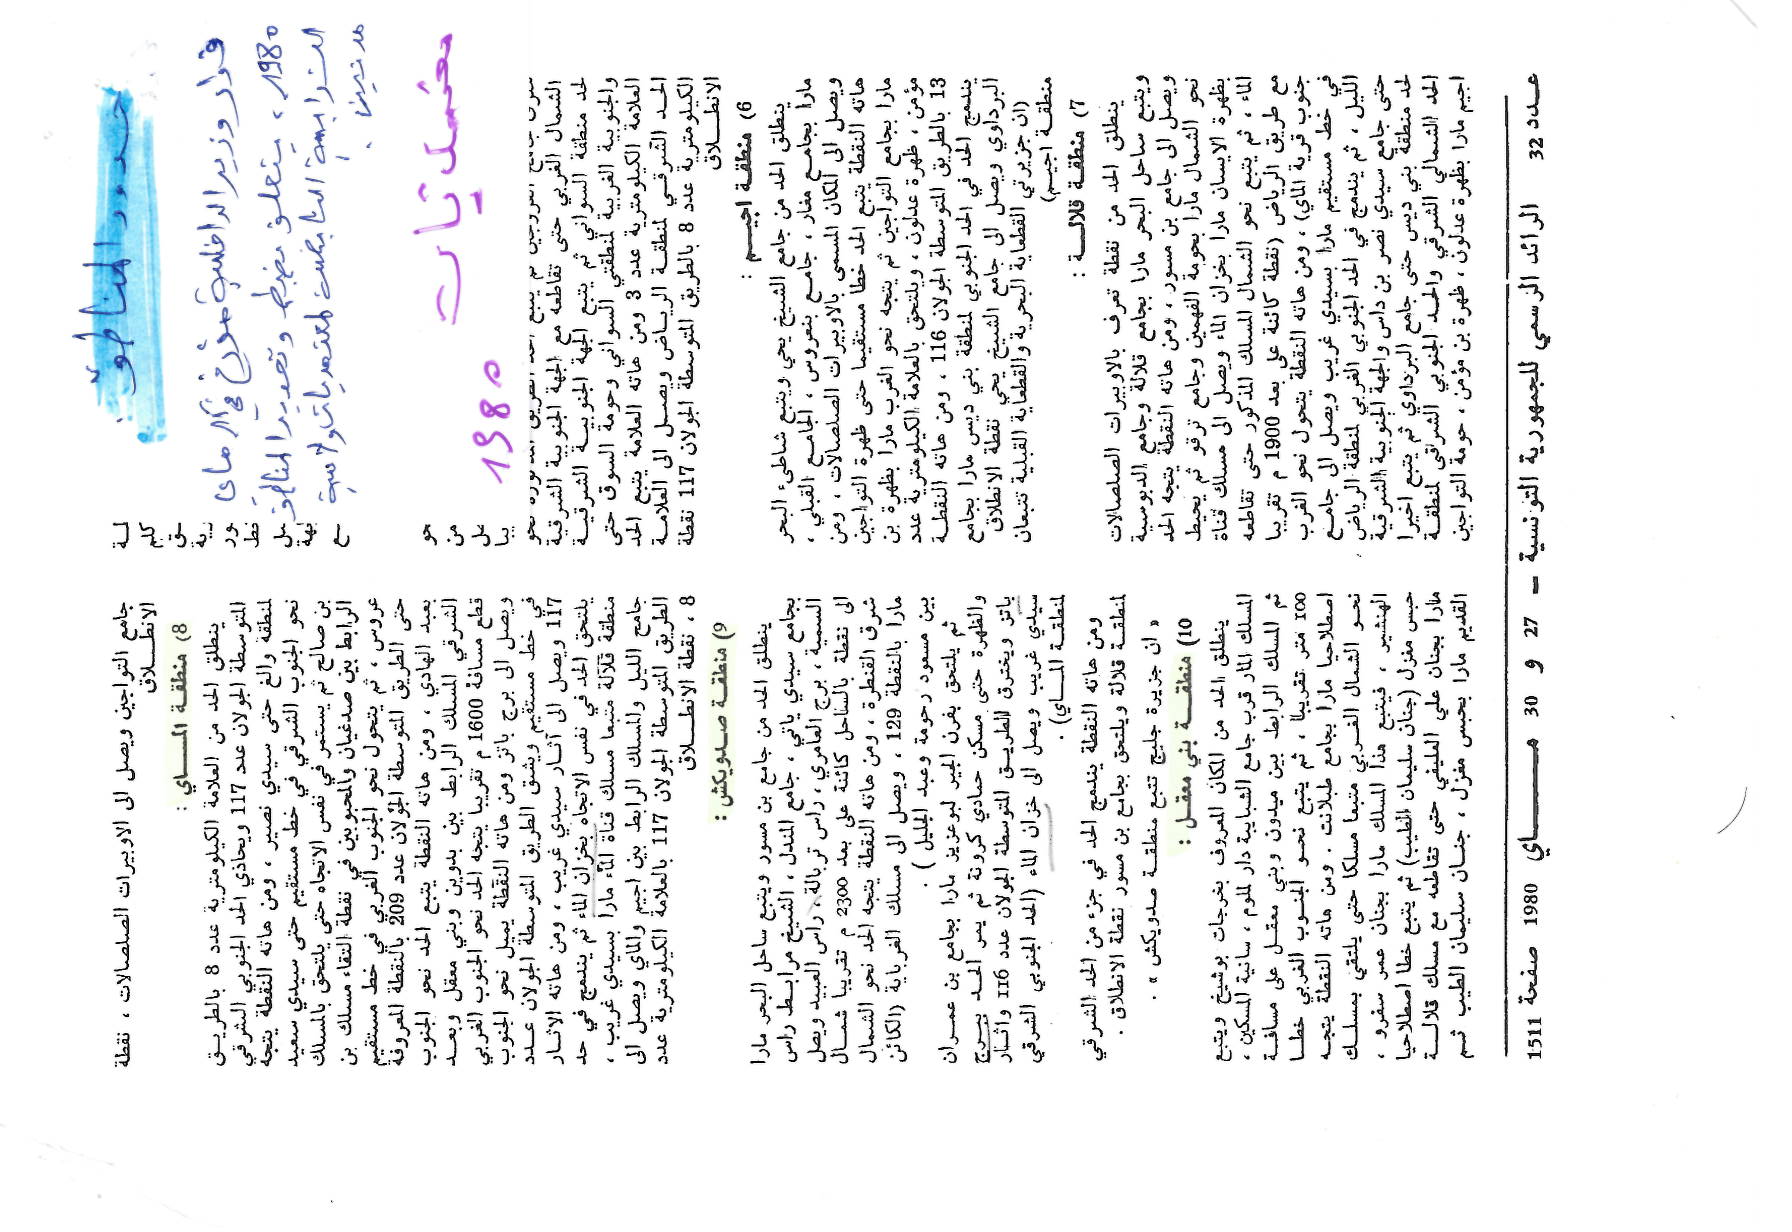 حدود المناطق
قرار وزير الداخلية مؤرخ في ماي
1980، يتعلق بضبط وتحديد المناطق
الترابية التابعة لمعتمديات ولاية
مدنين.
معتمديات
1980
الشمال الغربي حتى تقاطعه مع الجهة الجنوبية الشرقية
لحد منطقة السواني ثم يتبع الجهة الجنوبية الشرقية
والجنوبية الغربية لمنطقتي السواني وحومة السوق حتى
العلامة الكيلومترية عدد 3 ومن هاته العلامة يتبع الحد
الحد الشرقي لمنطقة الرياض ويصل الى العلامة
الكيلومترية عدد 8 بالطريق المتوسطة الجولان 117 نقطة
الانطلاق
6) منطقة اجيم :
ينطلق الحد من جامع الشيخ يحي ويتبع شاطىء البحر
مارا بجامع مغار، جامع بنعروس، الجامع القبلي،
ويصل الى المكان المسمى بالاوبيرات الصلصالات، ومن
هاته النقطة يتبع الحد خطا مستقيما حتى ظهرة التواجين
مارا بجامع التواجين ثم يتجه نحو الغرب مارا بظهرة بن
مؤمن، ظهرة عدلون، ويلتحق بالعلامة الكيلومترية عدد
13 بالطريق المتوسطة الجولان 116، ومن هاته النقطة
يندمج الحد في الحد الجنوبي لمنطقة بني ديس مارا بجامع
البرداوي ويصل الى جامع الشيخ يحي نقطة الانطلاق
(ان جزيرتي القطعاية البحرية والقطعاية القبلية تتبعان
منطقة اجيم)
7) منطقة قلالة :
ينطلق الحد من نقطة تعرف بالاوبيرات الصلصالات
ويتبع ساحل البحر مارا بجامع قلالة وجامع الدبوسية
ويصل الى جامع بن مسور، ومن هاته النقطة يتجه الحد
نحو الشمال مارا بحومة الفهمين وجامع ترقو ثم يحيط
بظهرة الايسان مارا بخزان الماء ويصل الى مسلك قناة
الماء، ثم يتبع نحو الشمال المسلك المذكور حتى تقاطعه
مع طريق الرياض (نقطة كائنة على بعد 1900 م تقريبا
جنوب قرية الماي)، ومن هاته النقطة يتحول نحو الغرب
في خط مستقيم مارا بسيدي غريب ويصل الى جامع
الليل، ثم يندمج في الحد الجنوبي الغربي لمنطقة الرياض
حتى جامع سيدي نصر بن داس والجهة الجنوبية الشرقية
لحد منطقة بني ديس حتى جامع البرداوي ثم يتبع اخيرا
الحد الشمالي الشرقي والحد الجنوبي الشرقي لمنطقة
اجيم مارا بظهرة عدلون، ظهرة بن مؤمن، حومة التواجين
جامع التواجين ويصل الى الاوبيرات الصلصالات، نقطة
الانطلاق
8) منطقة الماي :
ينطلق الحد من العلامة الكيلومترية عدد 8 بالطريق
المتوسطة الجولان عدد 117 ويحاذي الحد الجنوبي الشرقي
لمنطقة والغ حتى سيدي نصير، ومن هاته النقطة يتجه
نحو الجنوب الشرقي في خط مستقيم حتى سيدي سعيد
بن صالح ثم يستمر في نفس الاتجاه حتى يلتحق بالمسلك
الرابط بين صدغيان والمحبوبين في نقطة التقاء مسلك بن
عروس، ثم يتحول نحو الجنوب الغربي في خط مستقيم
حتى الطريق المتوسطة الجولان عدد 209 بالنقطة المعروفة
بعبد الهادي، ومن هاته النقطة يتبع الحد نحو الجنوب
الشرقي المسلك الرابط بين بدوين وبني معقل وبعد
قطع مسافة 1600 م تقريبا يتجه الحد نحو الجنوب الغربي
ويصل الى برج باتز ومن هاته النقطة يميل نحو الجنوب
في خط مستقيم ويشق الطريق المتوسطة الجولان عدد
117 ويصل الى آثار سيدي غريب، ومن هاته الاثار
يلتحق الحد في نفس الاتجاه بخزان الماء ثم يندمج في حد
منطقة قلالة متبعا مسلك قناة الماء مارا بسيدي غريب،
جامع الليل والمسلك الرابط بين اجيم والماي ويصل الى
الطريق المتوسطة الجولان 117 بالعلامة الكيلومترية عدد
8، نقطة الانطلاق
9) منطقة صدويكش :
ينطلق الحد من جامع بن مسور ويتبع ساحل البحر مارا
بجامع سيدي ياتي، جامع المندل، الشيخ مرابط راس
السمية، برج العامري، راس تربالة، راس العبيد ويصل
الى نقطة بالساحل كائنة على بعد 2300 م تقريبا شمال
شرق القنطرة، ومن هاته النقطة يتجه الحد نحو الشمال
مارا بالنقطة 129، ويصل الى مسلك الغرباية (الكائن
بين مسعود رحومة وعبد الجليل).
ثم يلتحق بفرن الجير لبوعزيز مارا بجامع بن عمران
والظهرة حتى مسكن حمادي كرونة ثم يمر الحد ببرج
باتز ويخترق الطريق المتوسطة الجولان عدد 116 واثار
سيدي غريب ويصل الى خزان الماء (الحد الجنوبي الشرقي
لمنطقة الماي).
ومن هاته النقطة يندمج الحد في جزء من الحد الشرقي
لمنطقة قلالة ويلتحق بجامع بن مسور نقطة الانطلاق.
« ان جزيرة جليج تتبع منطقة صدويكش ».
10) منطقة بني معقل :
ينطلق الحد من المكان المعروف بخرجات بوشيخ ويتبع
المسلك المار قرب جامع الشبابية دار لموم، سانية المسكين،
ثم المسلك الرابط بين ميدون وبني معقل على مسافة
100 متر تقريبا، ثم يتبع نحو الجنوب الغربي خطا
اصطلاحيا مارا بجامع طبلانت. ومن هاته النقطة يتجه
نحو الشمال الغربي متبعا مسلكا حتى يلتقي بمسلك
الهنشير، فيتبع هذا المسلك مارا بجنان عمر سفرو،
حبس مغزل (جنان سليمان الطيب) ثم يتبع خطا اصطلاحيا
مارا بجنان علي العليفي حتى تقاطعه مع مسلك قلالة
القديم مارا بحبس مغزل، جنان سليمان الطيب ثم
عدد 32 الرائد الرسمي للجمهورية التونسية – 27 و 30 ماي 1980 صفحة 1511